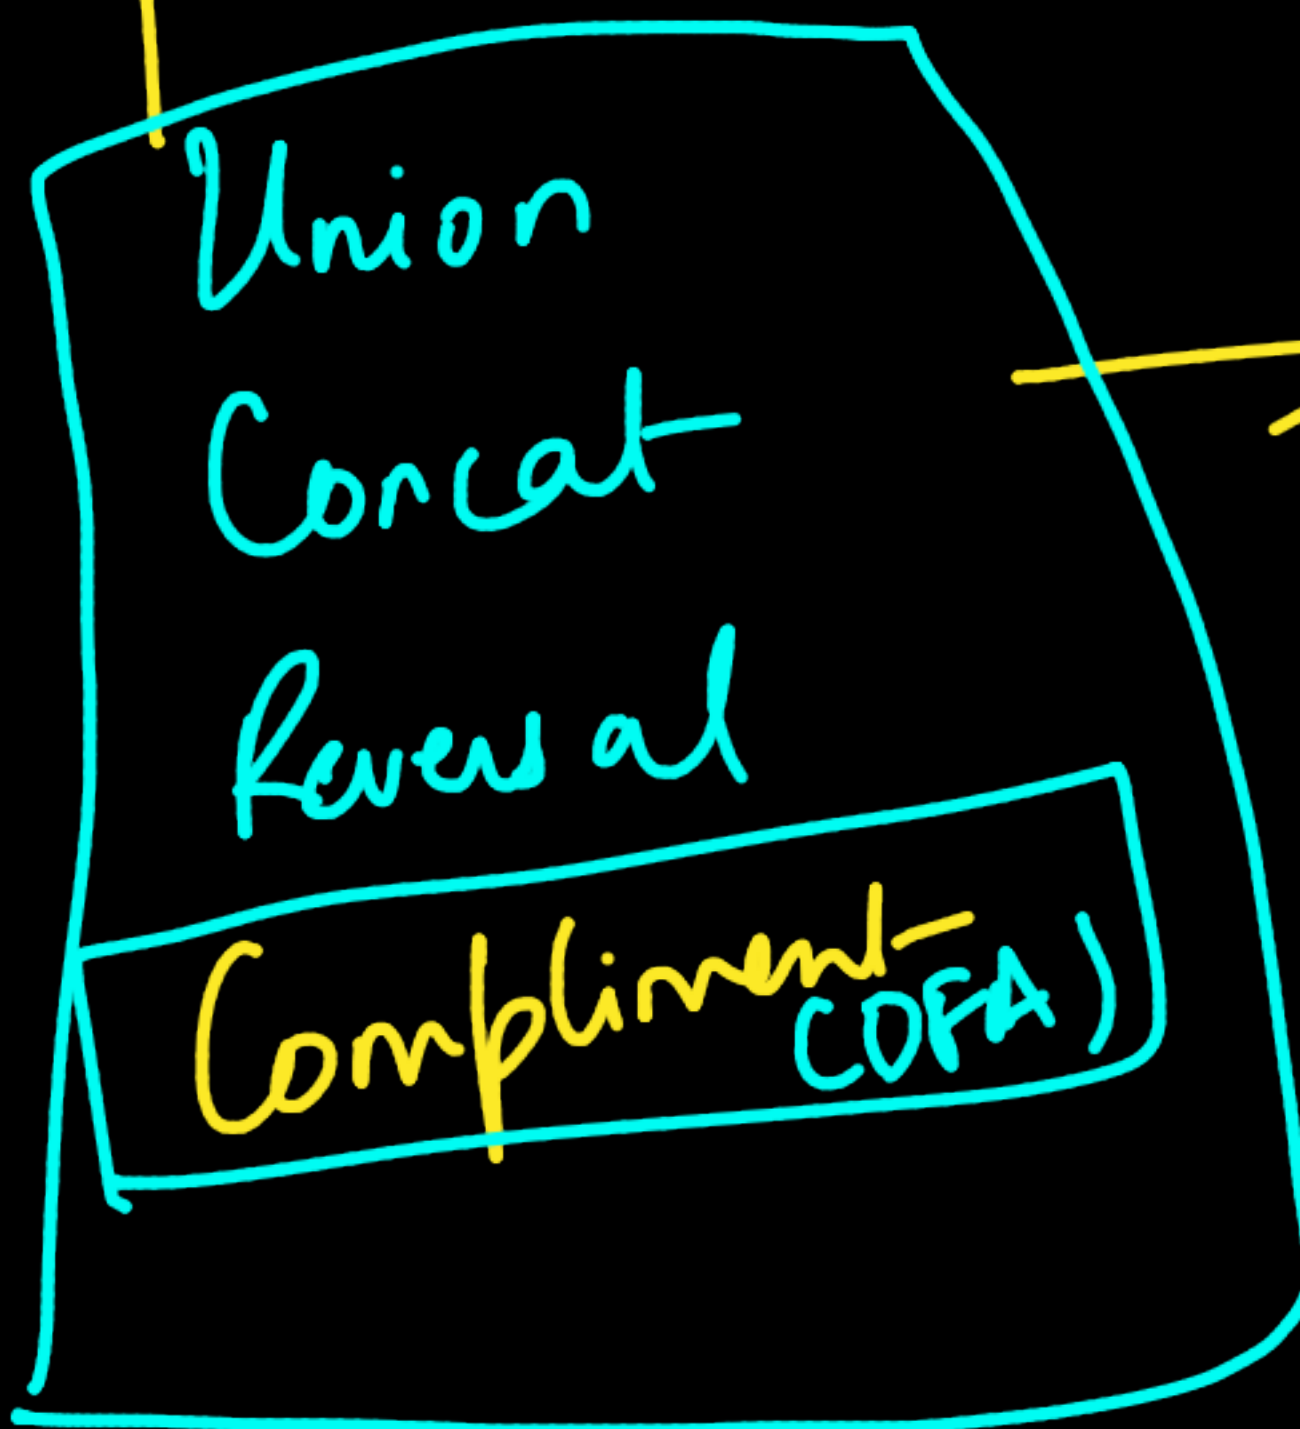 Union
Concat
Reversal
Compliment
(DFA)